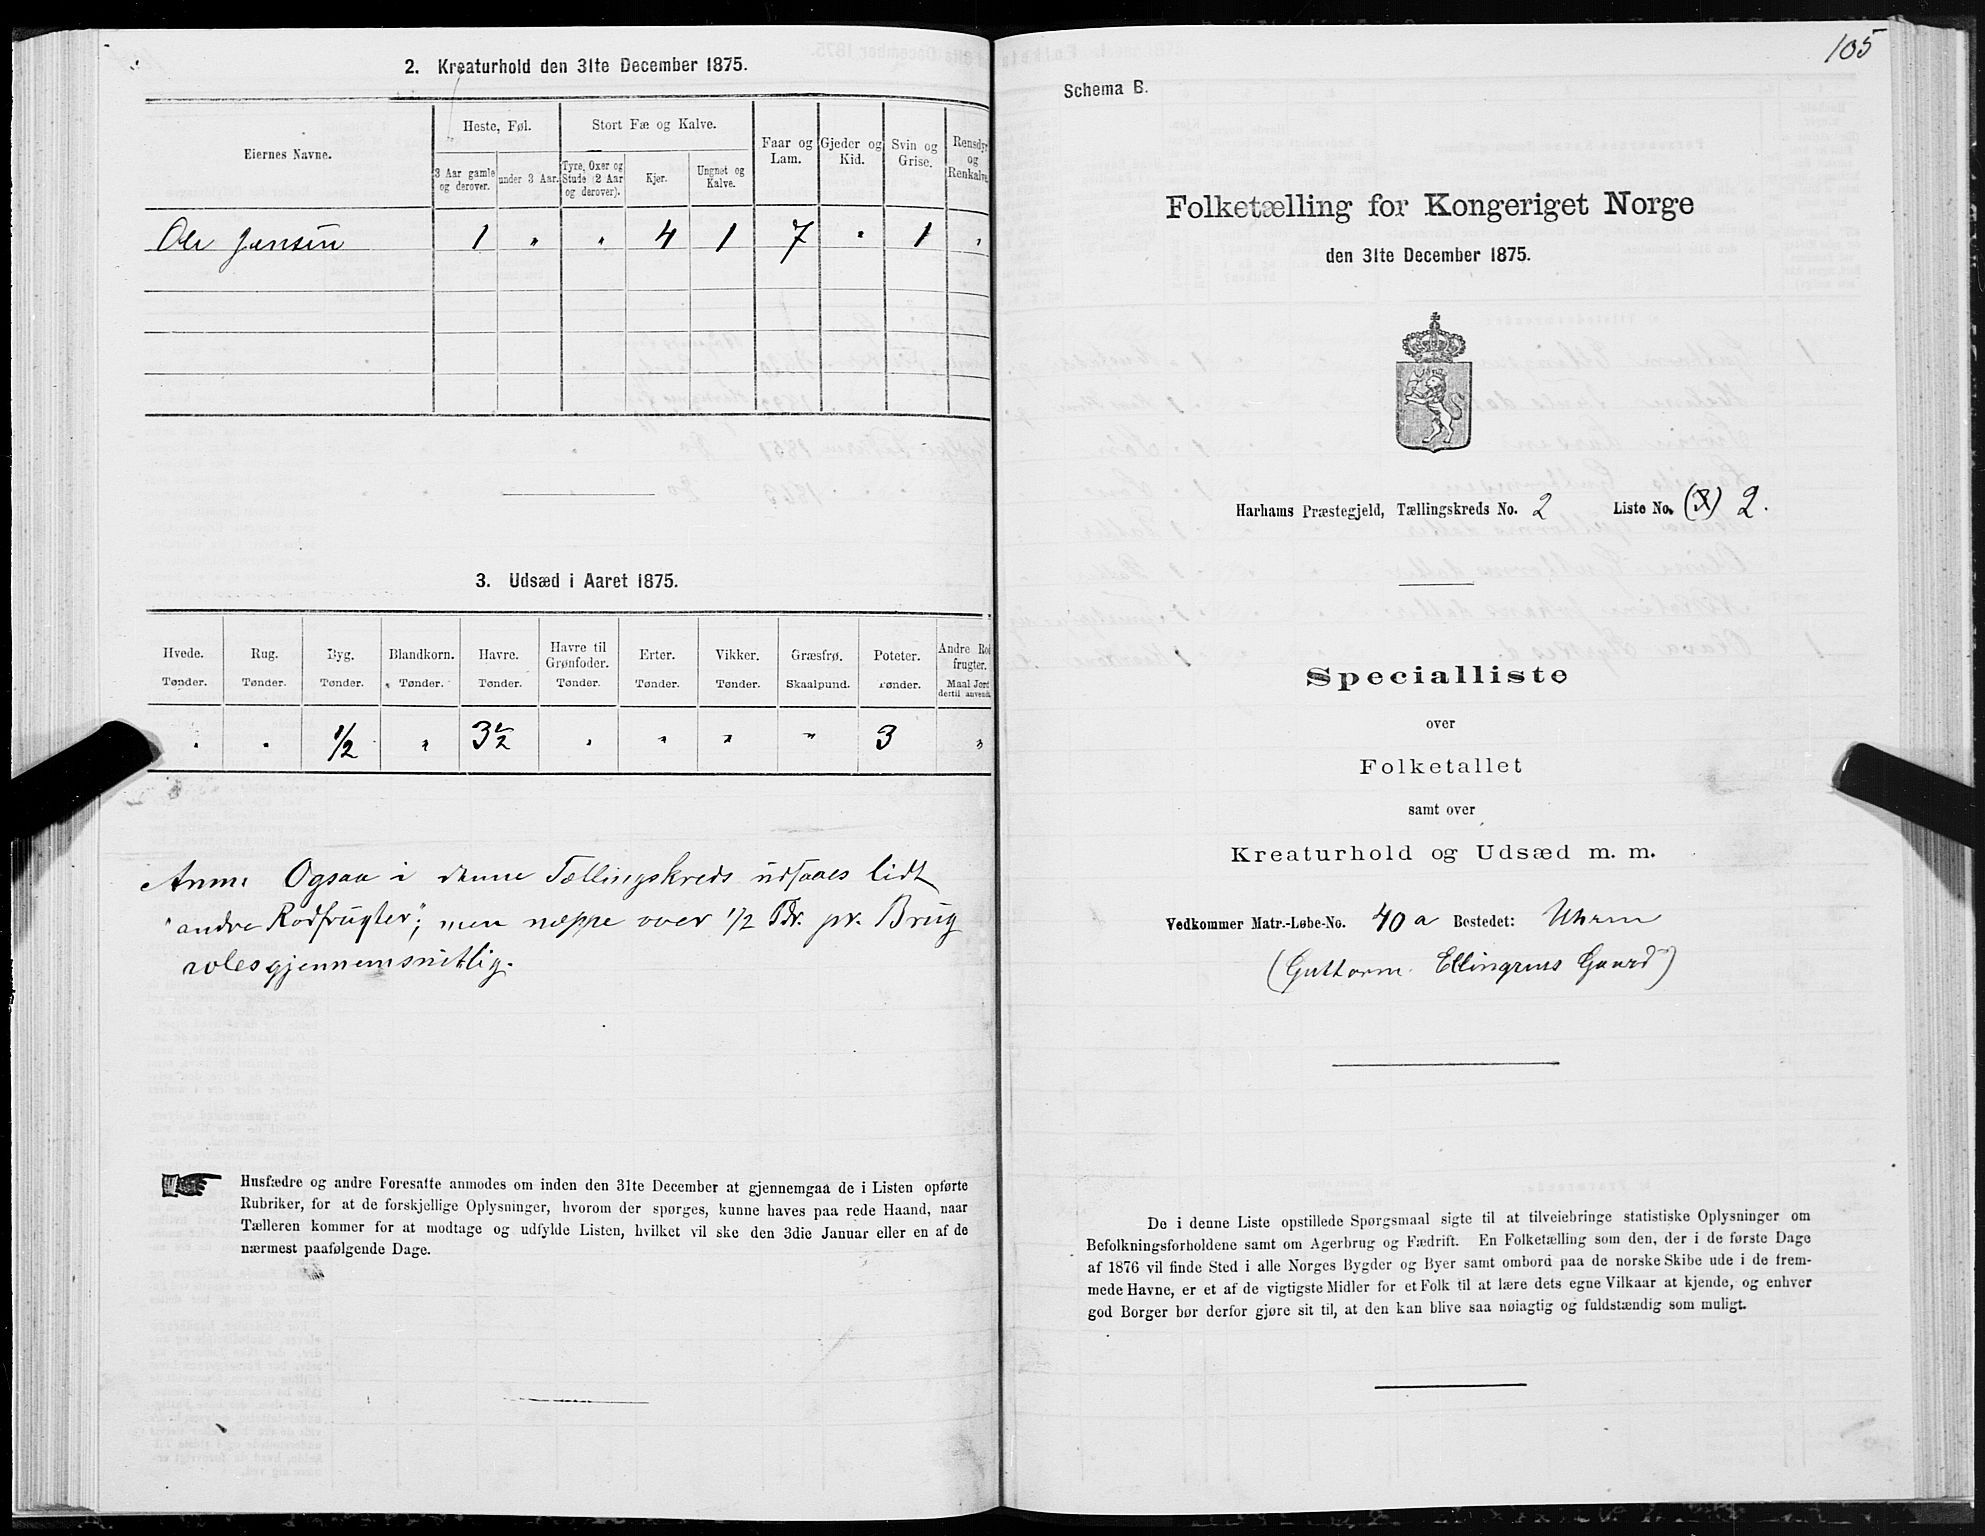 2. Kreaturhold den 31te December 1875.
Eiernes Navne.
Heste, Føl.
3 Aar gamle og derover.
under 3 Aar.
Stort Fæ og Kalve.
Tyre, Oxer og Stude (2 Aar og derover).
Kjør.
Ungnet og Kalve.
Faar og Lam.
Gjeder og Kid.
Svin og Grise.
Rensdyr og Renkalve.
Ole Jensen 1 " " 4 1 7 " 1 "
3. Udsæd i Aaret 1875.
Hvede. Rug. Byg. Blandkorn. Havre. Havre til Grønfoder. Erter. Vikker. Græsfrø. Poteter. Andre Rodfrugter.
Tønder. Tønder. Tønder. Tønder. Tønder. Tønder. Tønder. Tønder. Skaalpund. Tønder. Maal Jord dertil anvendt.
" " 1/2 " 3 1/2 " " " " 3 "
Anm. Ogsaa i denne Tællingskreds udsaaes lidt
"andre Rodfrugter"; men neppe over 1/2 Tdr. pr. Brug
gjennemsnitlig.
Husfædre og andre Foresatte anmodes om inden den 31te December at gjennemgaa de i Listen opførte
Rubriker, for at de forskjellige Oplysninger, hvorom der spørges, kunne haves paa rede Haand, naar
Tælleren kommer for at modtage og udfylde Listen, hvilket vil ske den 3die Januar eller en af de
nærmest paafølgende Dage.
105
Schema B.
Folketælling for Kongeriget Norge
den 31te December 1875.
Harhams Præstegjeld, Tællingskreds No. 2 Liste No. (3) 2.
Specialliste
over
Folketallet
samt over
Kreaturhold og Udsæd m. m.
Vedkommer Matr.-Løbe-No. 40 a Bostedet: Uhrem
(Guttorm Ellingsens Gaard)
De i denne Liste opstillede Spørgsmaal sigte til at tilveiebringe statistiske Oplysninger om
Befolkningsforholdene samt om Agerbrug og Fædrift. En Folketælling som den, der i de første Dage
af 1876 vil finde Sted i alle Norges Bygder og Byer samt ombord paa de norske Skibe ude i de frem-
mede Havne, er et af de vigtigste Midler for et Folk til at lære dets egne Vilkaar at kjende, og enhver
god Borger bør derfor gjøre sit til, at den kan blive saa nøiagtig og fuldstændig som muligt.